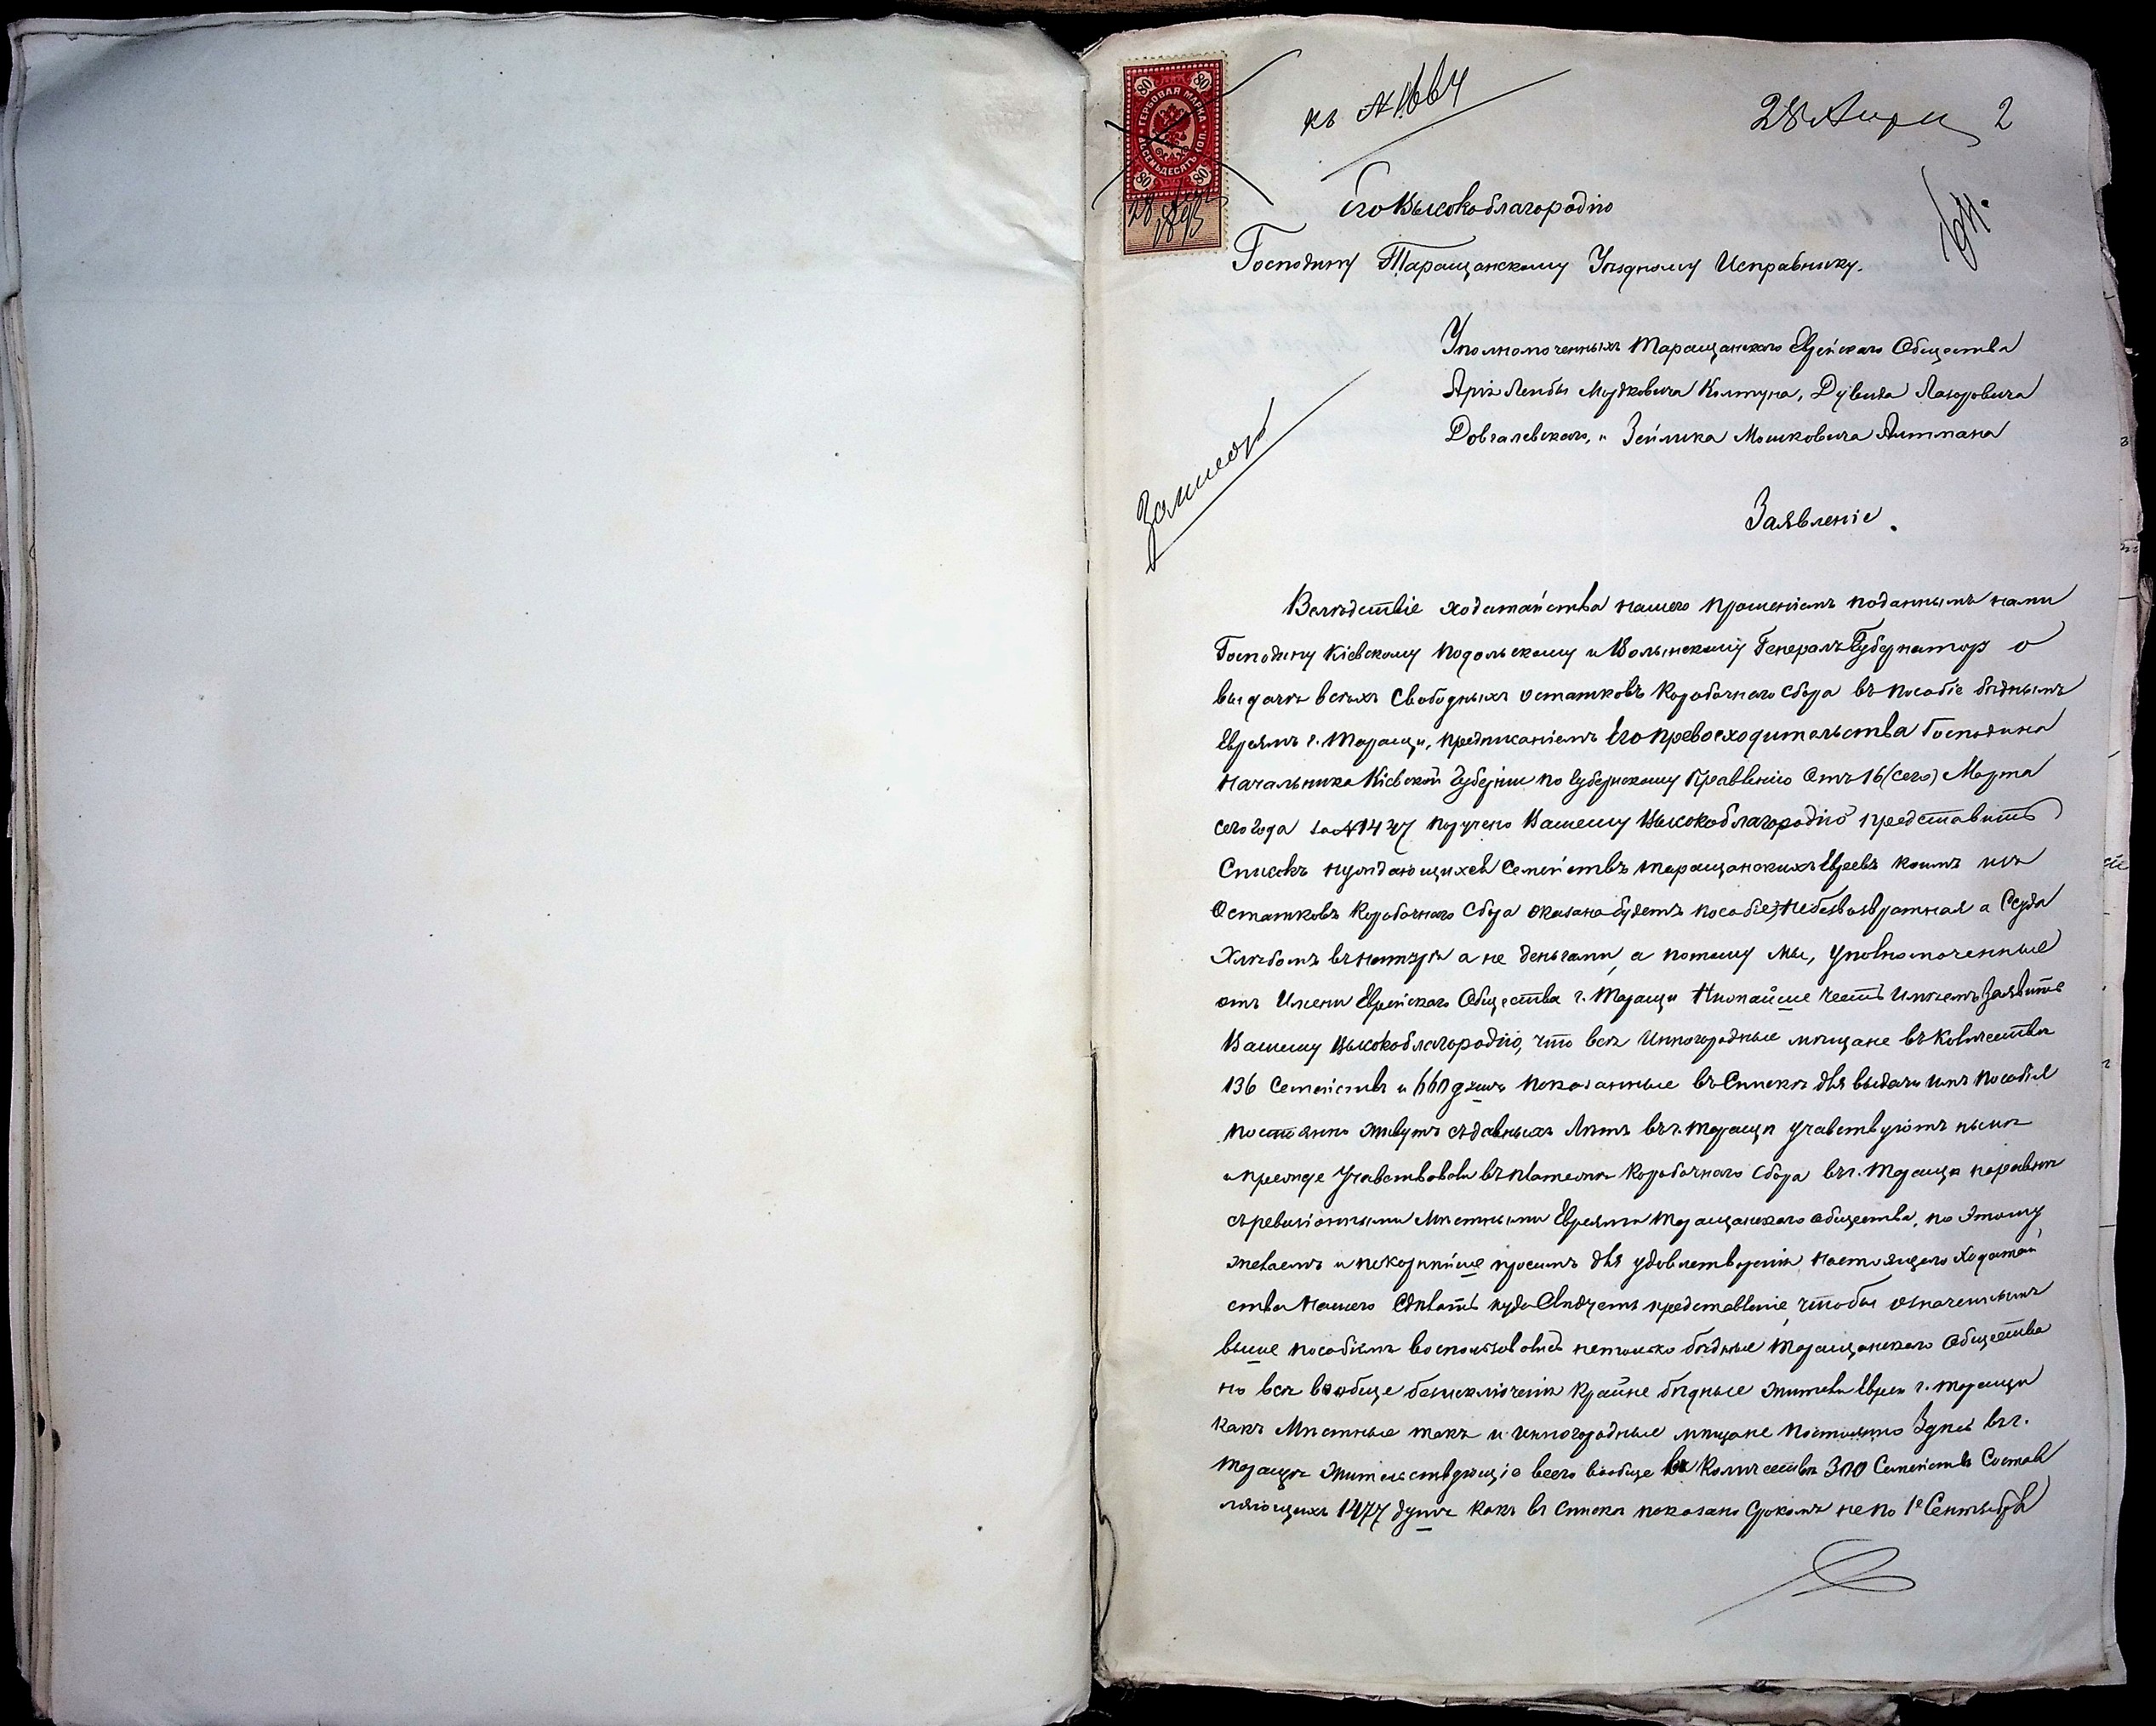 80 80
ГЕРБОВАЯ МАРКА
ВОСЕМЬДЕСЯТЪ КОП.
80 80
28
1893
къ № 1664
28 Апрѣл 2
Его Высокоблагородію
Господину Таращанскому Уѣздному Исправнику.
Уполномоченныхъ Таращанскаго Еврейскаго Общества
Арія Лейбы Мордковича Колтуна, Дувида Лазоровича
Довгалевскаго, и Зейлика Мошковича Алтмана
Заявленіе.
Вслѣдствіе ходатайства нашего прошеніемъ поданнымъ нами
Господину Кіевскому Подольскому и Волынскому Генералъ Губернатору о
выдачѣ всѣхъ Свободныхъ остатковъ Коробочнаго сбора въ пособіе бѣднымъ
Евреямъ г. Таращи, предписаніемъ Его превосходительства Господина
Начальника Кіевской Губерніи по Губернскому Правленію Отъ 16 (сего) Марта
сего года за № 1427 поручено Вашему Высокоблагородію представить
Списокъ нуждающихся Семействъ таращанскихъ Евреевъ коимъ изъ
Остатковъ Коробочнаго Сбора оказано будетъ пособіе, не безвозвратная а Ссуда
Хлѣбомъ въ натурѣ а не деньгами, а потому мы, уполномоченные
отъ Имени Еврейскаго Общества г. Таращи честь Имѣемъ Заявить
Вашему Высокоблагородію, что всѣ Иногородные мѣщане въ количествѣ
136 Семействъ и 660 душъ показанные въ Спискѣ для выдачи имъ пособія
постоянно живутъ съ давныхъ Лѣтъ въ г. Таращи учавствуютъ нынѣ
и прежде Учавствовали въ платежѣ Коробочнаго Сбора въ г. Тараща наравнѣ
съ ревизіонными Мѣстными Евреями таращанскаго общества, по Этому
желаемъ и покорнѣйше просимъ для удовлетворенія настоящаго Ходатай
ства Нашего Сдѣлать куда Слѣдуетъ представленіе, чтобы означеннымъ
выше пособіемъ воспользовались нетолько бѣдные Таращанскаго общества
но всѣ вообще безисключенія Крайне бѣдные жители Евреи г. Таращи
какъ Мѣстные такъ и иногородные мѣщане постоянно Здѣсь въ г.
Таращѣ жительствующіе всего вообще въ Количествѣ 310 Семействъ Состав
ляющихъ 1477 душъ какъ въ спискѣ показано Срокомъ не по 1е Сентября